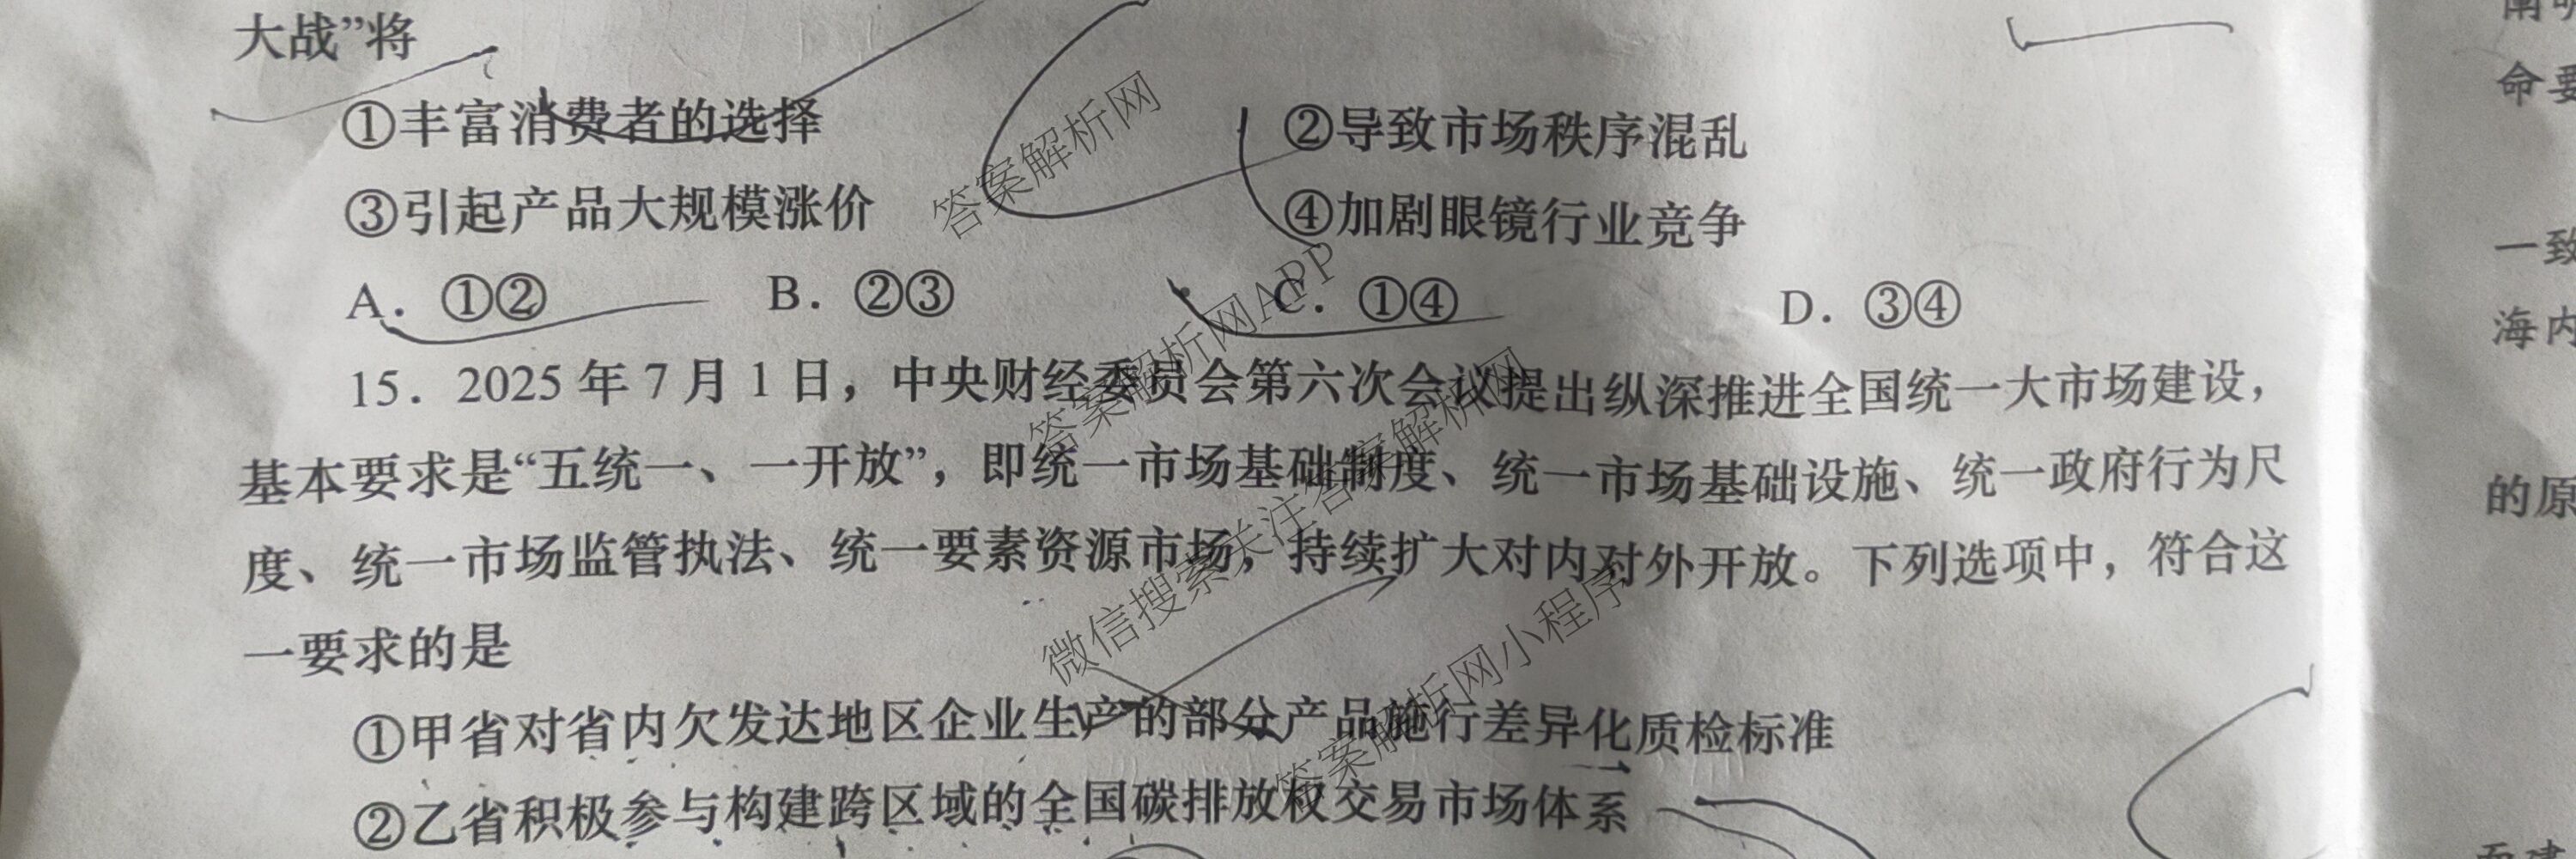 大战”将
①丰富消费者的选择 ②导致市场秩序混乱
③引起产品大规模涨价 ④加剧眼镜行业竞争
A. ①② B. ②③ C. ①④ D. ③④
15. 2025年7月1日，中央财经委员会第六次会议提出纵深推进全国统一大市场建设，
基本要求是“五统一、一开放”，即统一市场基础制度、统一市场基础设施、统一政府行为尺
度、统一市场监管执法、统一要素资源市场，持续扩大对内对外开放。下列选项中，符合这
一要求的是
①甲省对省内欠发达地区企业生产的部分产品施行差异化质检标准
②乙省积极参与构建跨区域的全国碳排放权交易市场体系
命要
一致
海内
的原
答案解析网
答案解析网APP
微信搜索关注答案解析网
答案解析网小程序